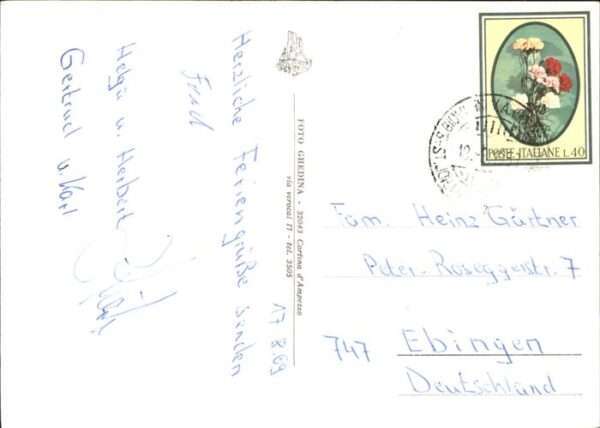 Herzliche Feriengrüße senden
Helga u. Herbert
Gertrud u. Karl
17 8.69
FOTO GHEDINA - 32043 Cortina d'Ampezzo
via verocai 11 - tel. 3505
POSTE ITALIANE L. 40
Fam. Heinz Gärtner
Peter-Roseggerstr. 7
747 Ebingen
Deutschland